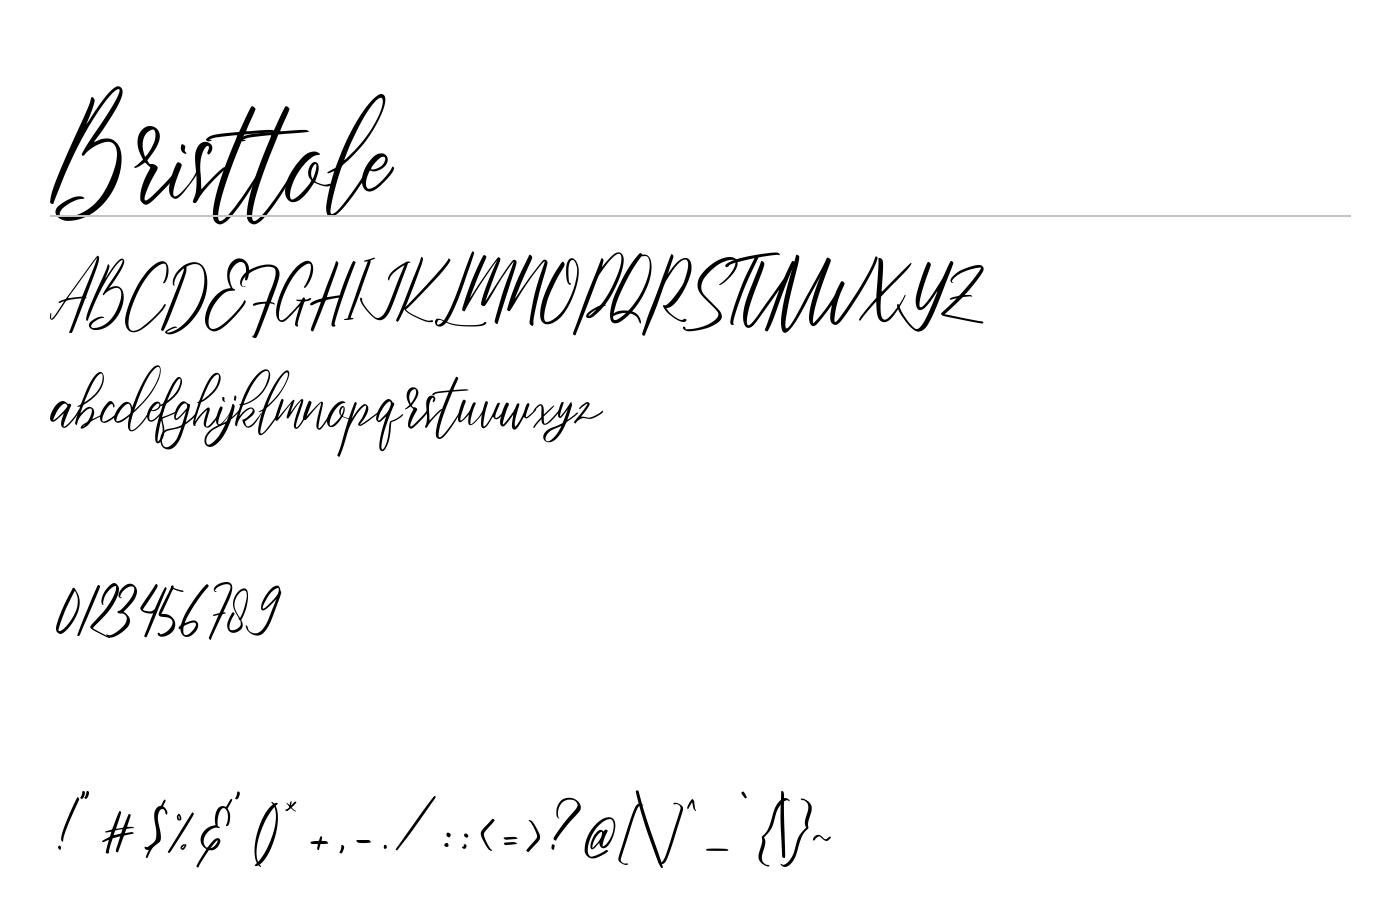 Bristtole
ABCDEFGHIJKLMNOPQRSTUVWXYZ
abcdefghijklmnopqrstuvwxyz
0123456789
!"#$%&'()*+,-./:;<=>?@[\]^_`{|}~